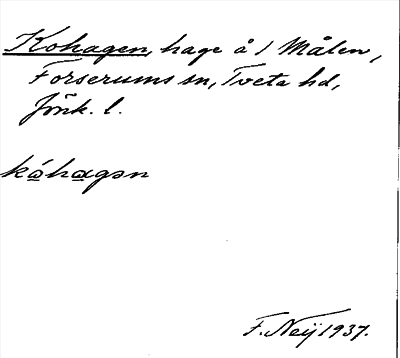 Kohagen, hage å 1 Målen,
Forserums sn, Tveta hd,
Jönk. l.
kóhagən
F. Neij 1937.